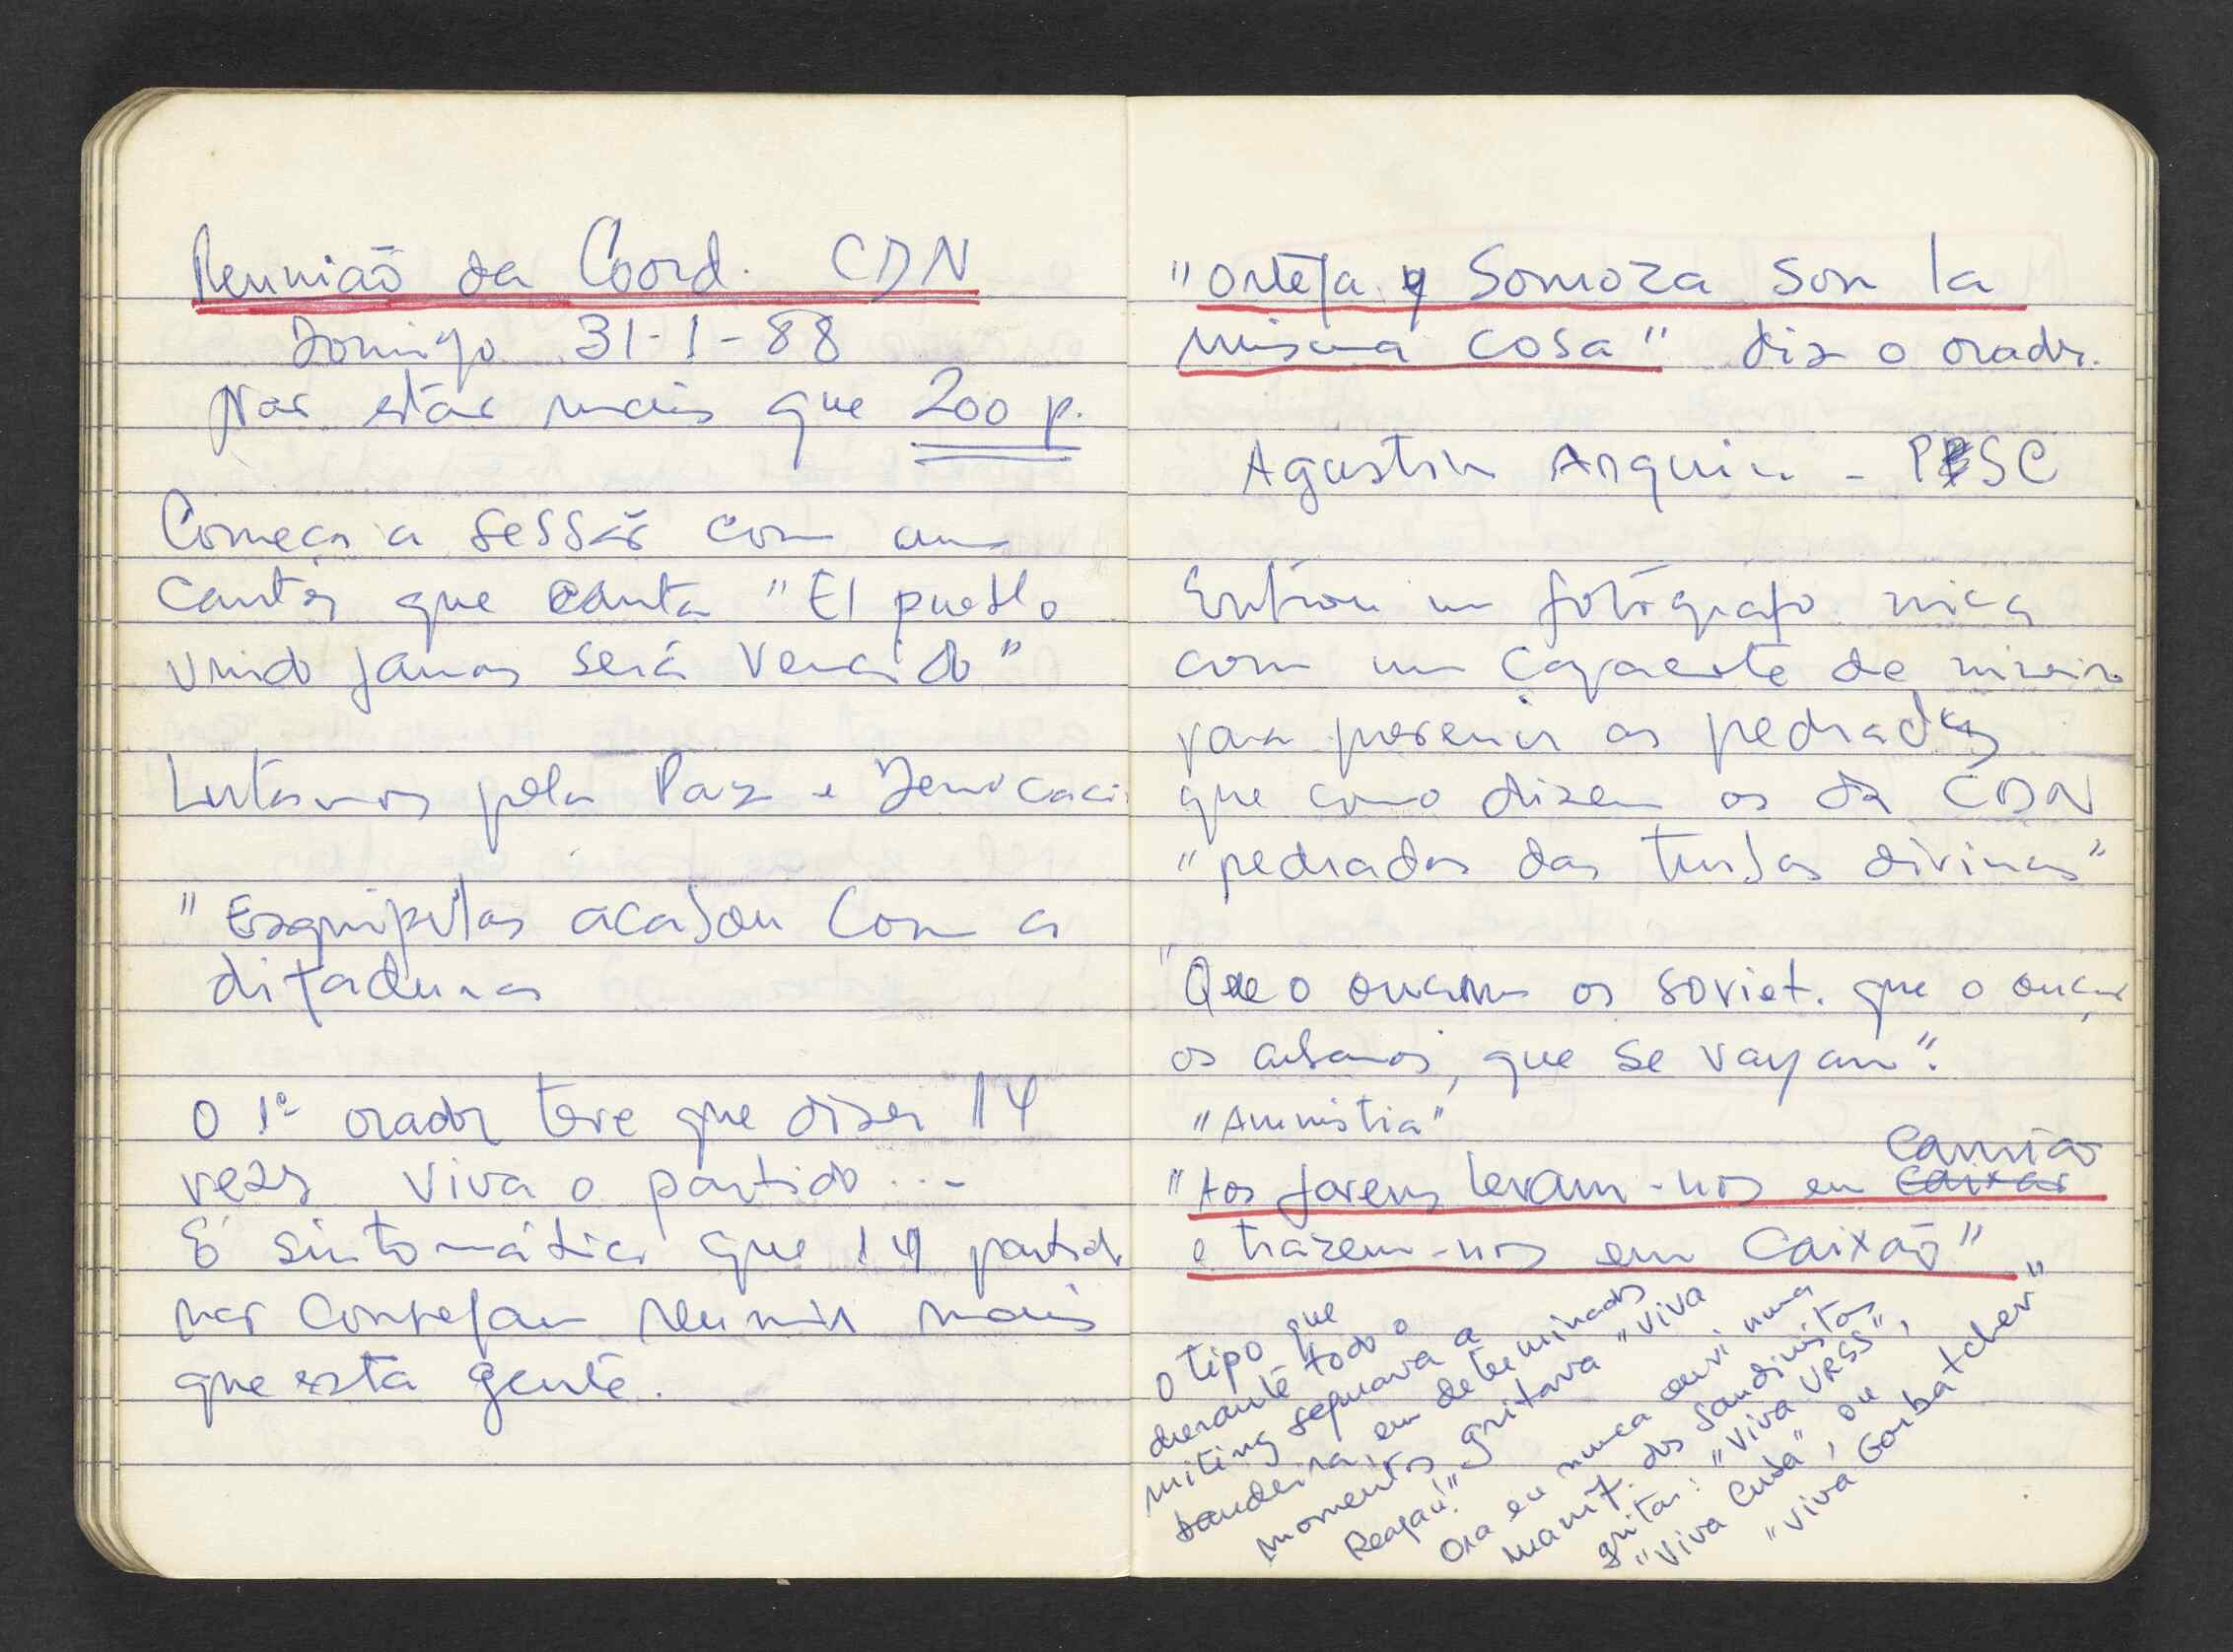 Reunião da Coord. CDN
Domingo 31-1-88
Não estão mais que 200 p.
Começa a sessão com um
cantor que canta "El pueblo
unido jamas será vencido"
Lutamos pela Paz e Democraci
"Esquipulas acabou com a
ditaduras
O 1º orador teve que dizer 14
vezes viva o partido...
É sintomático que 14 partid
não consejam reunir mais
que esta gente.
"Ortega y Somoza son la
misma cosa" diz o orador.
Agustin Arquin - PSC
Entrou um fotógrafo nica
com um capacete de mineiro
para prevenir as pedradas
que como dizem os da CDN
"pedradas das turbas divinas"
"Que o oucam os soviet. que o ouçam
os cubanos, que se vayan".
"Amnistia"
"Aos jovens levam-nos em caixão camião
e trazem-nos em caixão"
O tipo que
durante todo o
miting segurava a
bandeira, em determinados
momentos gritava "viva
Reagan!"
Ora eu nunca ouvi numa
manif. dos sandinistas
gritar: "viva URSS",
"viva Cuba", ou
"viva Gorbatchev"